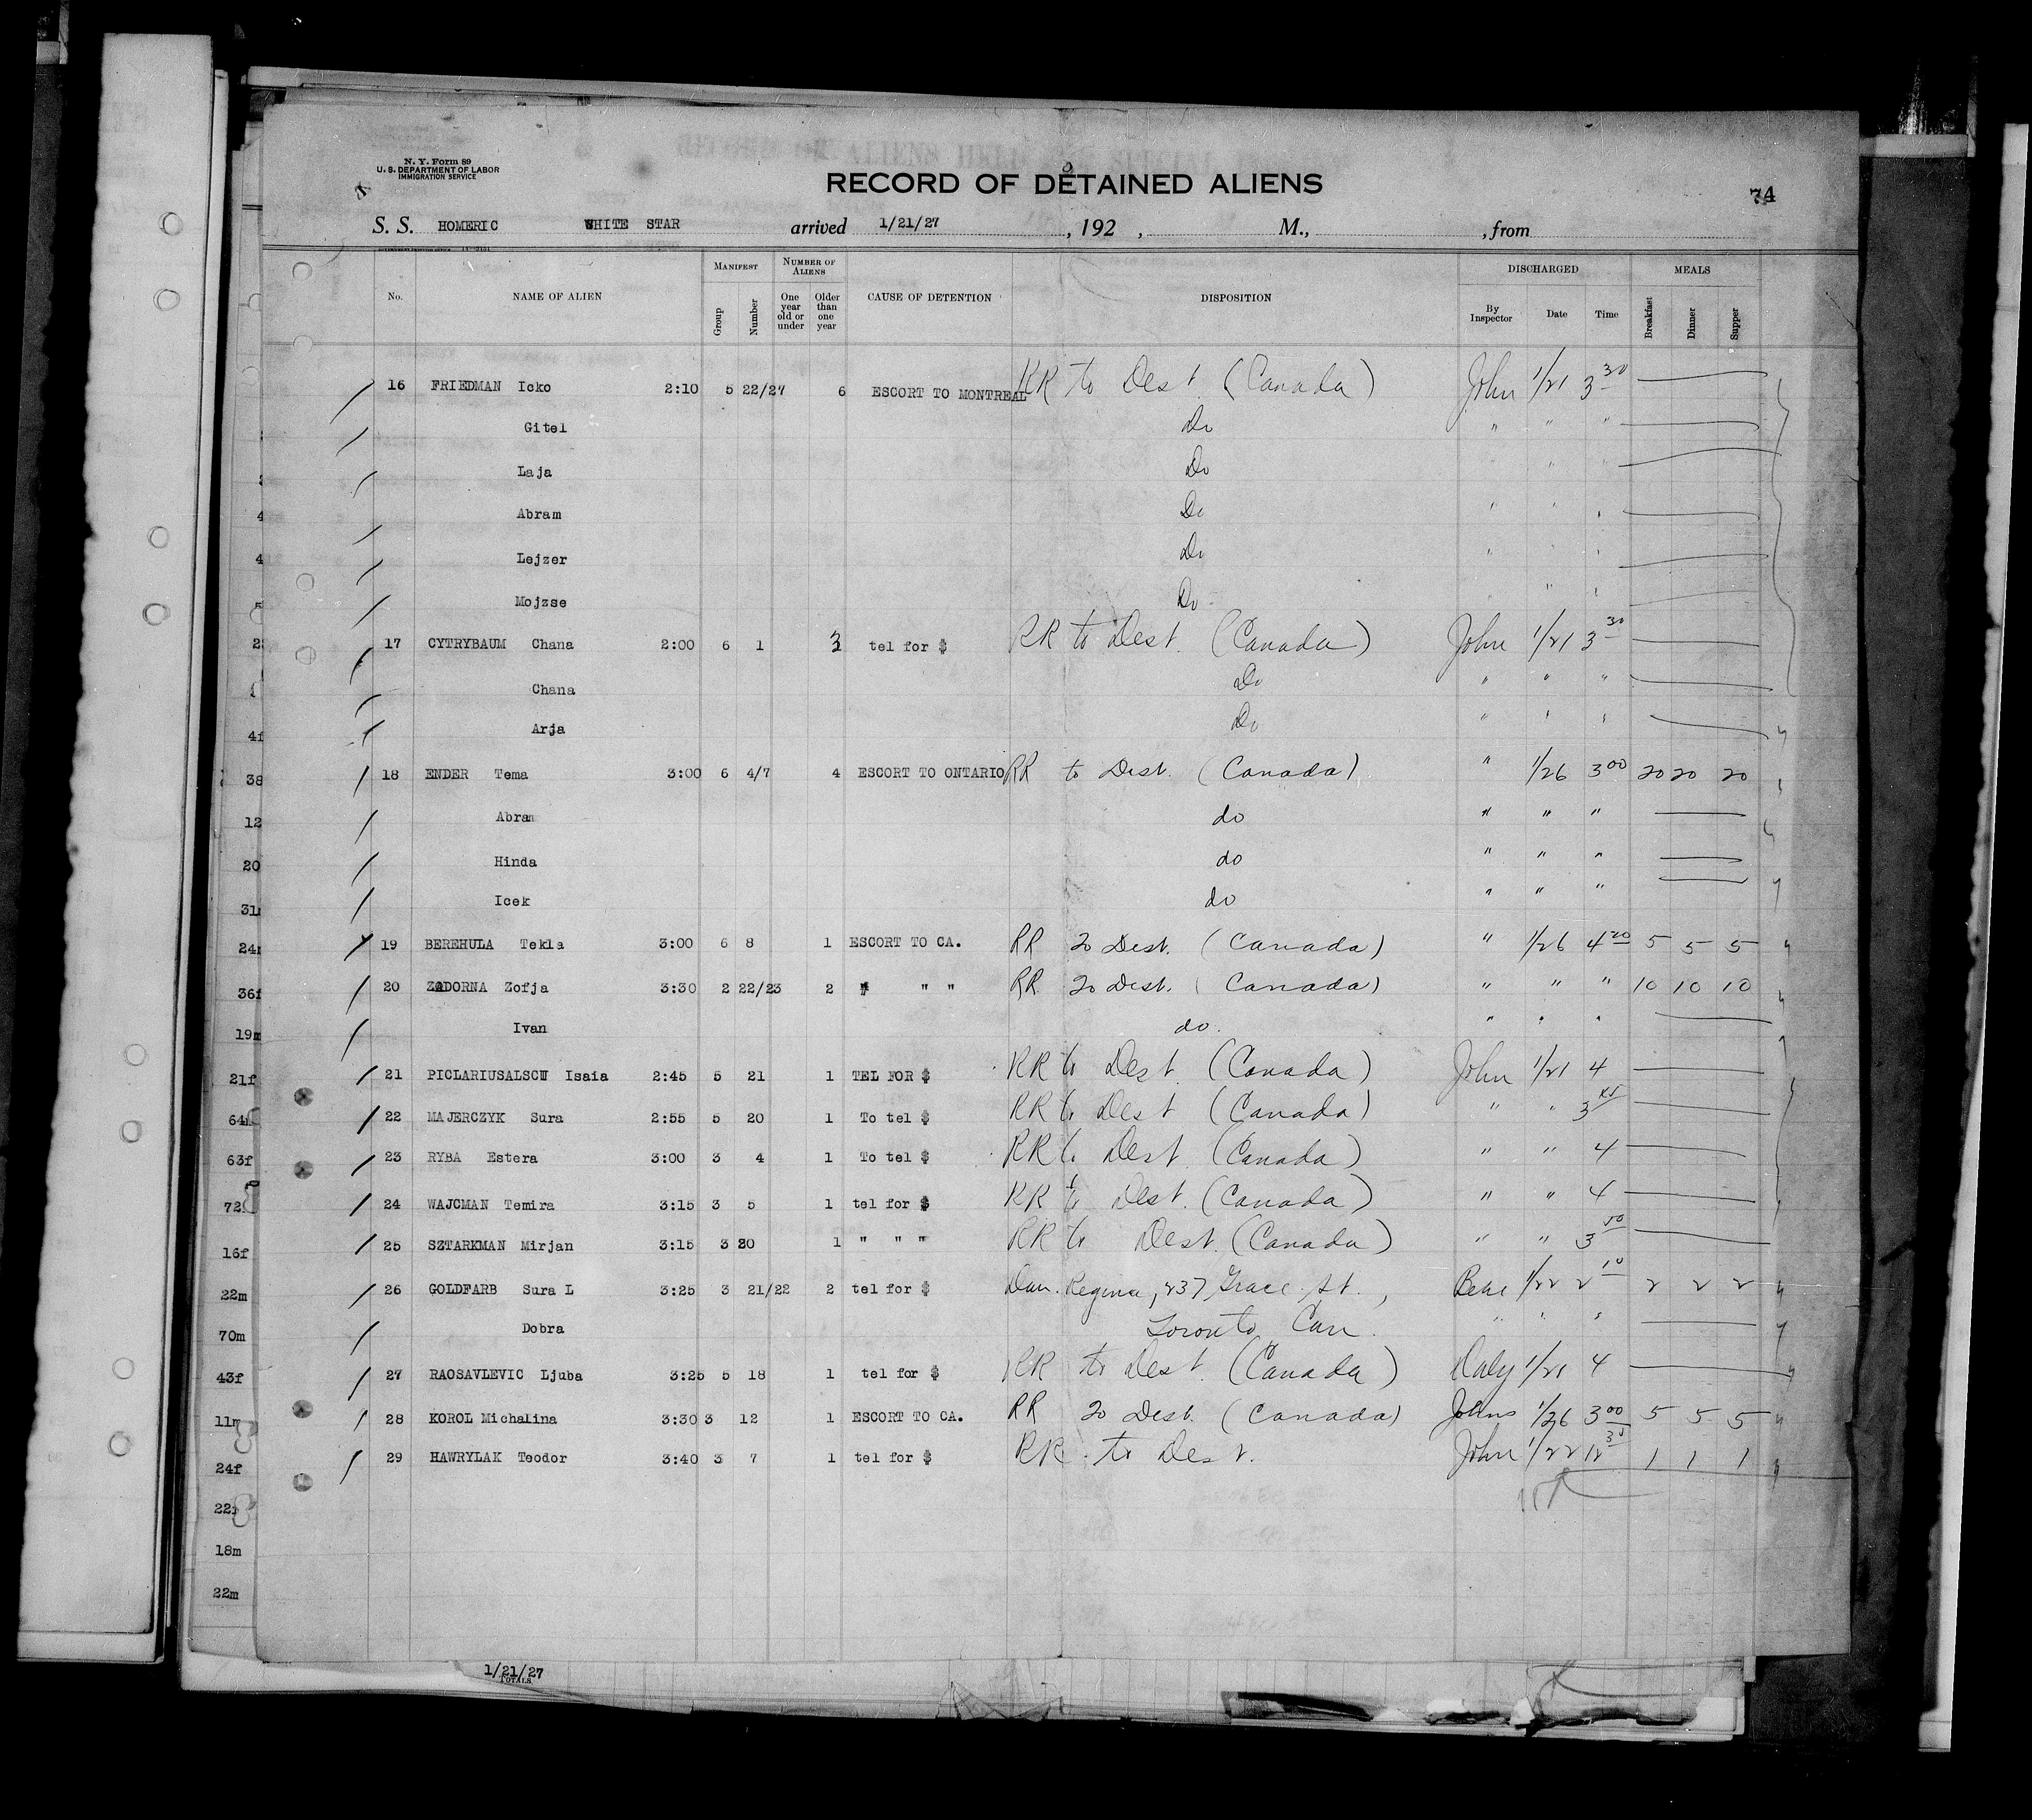 N. Y. Form 89
U. S. DEPARTMENT OF LABOR
IMMIGRATION SERVICE
RECORD OF DETAINED ALIENS
74
S. S. HOMERIC WHITE STAR arrived 1/21/27 , 192 , M., , from
No. NAME OF ALIEN MANIFEST Group Number NUMBER OF ALIENS One year old or under Older than one year CAUSE OF DETENTION DISPOSITION DISCHARGED By Inspector Date Time MEALS Breakfast Dinner Supper
16 FRIEDMAN Icko 2:10 5 22/27 6 ESCORT TO MONTREAL RR to Dest. (Canada) John 1/21 3 30
Gitel Do " " "
Laja Do " "
Abram Do " " "
Lejzer Do " " "
Mojzse Do " "
17 CYTRYBAUM Chana 2:00 6 1 3 tel for $ RR to Dest. (Canada) John 1/21 3 30
Chana Do " " "
Arja Do " " "
18 ENDER Tema 3:00 6 4/7 4 ESCORT TO ONTARIO RR to Dest. (Canada) " 1/26 3 00 20 20 20
Abram do " " "
Hinda do " " "
Icek do " " "
19 BEREHULA Tekla 3:00 6 8 1 ESCORT TO CA. RR to Dest. (Canada) " 1/26 4 20 5 5 5
20 ZADORNA Zofja 3:30 2 22/23 2 " " " RR to Dest. (Canada) " " " 10 10 10
Ivan do. " " "
21 PICLARIUSALSCU Isaia 2:45 5 21 1 TEL FOR $ RR to Dest. (Canada) John 1/21 4
22 MAJERCZYK Sura 2:55 5 20 1 To tel $ RR to Dest (Canada) " " 3
23 RYBA Estera 3:00 3 4 1 To tel $ RR to Dest. (Canada) " " 4
24 WAJCMAN Temira 3:15 3 5 1 tel for $ RR to Dest. (Canada) " " 4
25 SZTARKMAN Mirjan 3:15 3 20 1 " " " RR to Dest. (Canada) " " 3 50
26 GOLDFARB Sura L 3:25 3 21/22 2 tel for $ Dau. Regina, 237 Grace St., 1/22 2 10 2 2 2
Dobra Toronto, Can. " " "
27 RAOSAVLEVIC Ljuba 3:25 5 18 1 tel for $ RR to Dest. (Canada) Daly 1/21 4
28 KOROL Michalina 3:30 3 12 1 ESCORT TO CA. RR to Dest. (Canada) Johns 1/26 3 00 5 5 5
29 HAWRYLAK Teodor 3:40 3 7 1 tel for $ RR. to Dest. John 1/22 12 30 1 1 1
4
4
5
2
4f
38
12
20
31
24
36f
19m
21f
64
63f
72
16f
22m
70m
43f
11m
24f
22
18m
22m
1/21/27
TOTALS